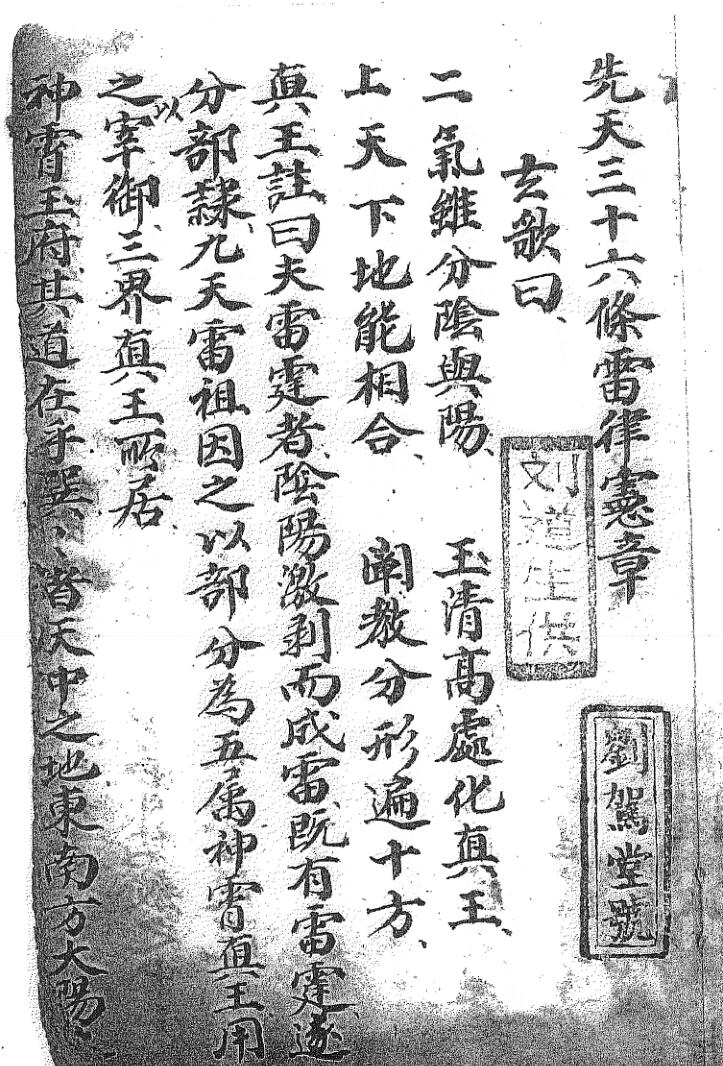 先天三十六條雷律憲章
玄歌曰、
二氣雖分陰與陽、 玉清高處化真王、
上天下地能相合、 闡教分形遍十方、
真王註曰夫雷霆者陰陽激剥而成雷、既有雷霆遂
分部隸、九天雷祖因之以部分為五属神霄真王用
之以宰御、三界真王所居、
神霄玉府其道在乎巽、巽者天中之地東南方大陽
刘道生供
劉駕堂號